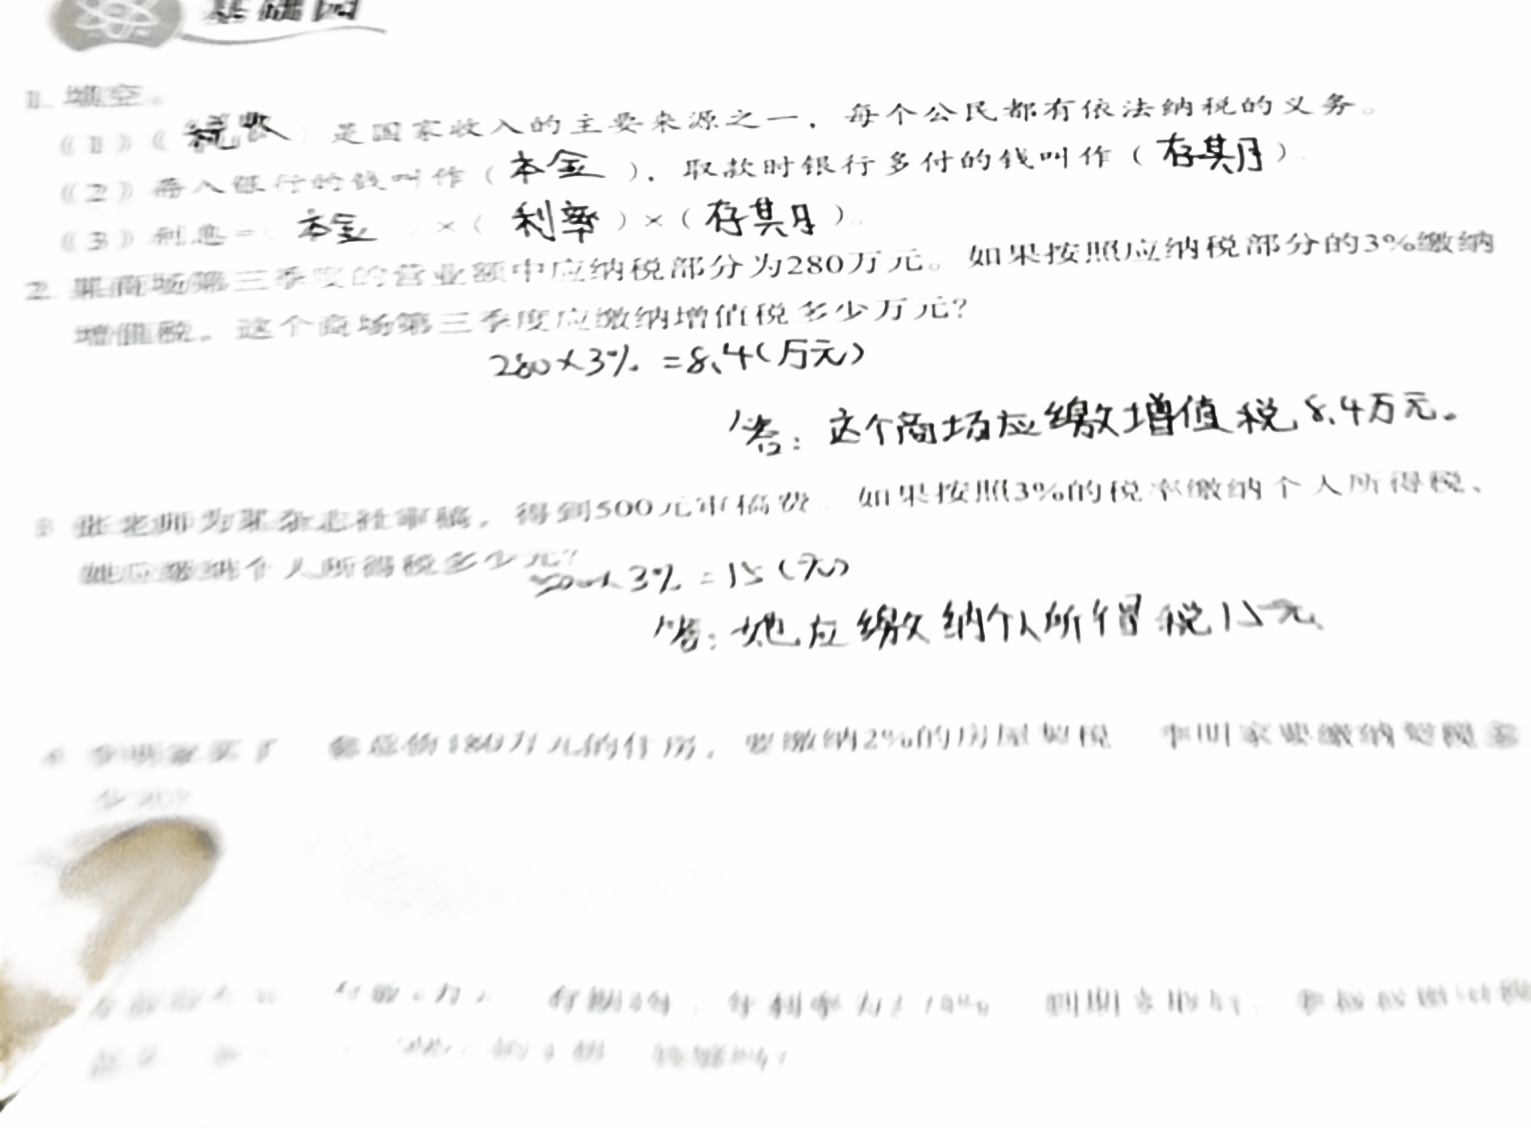 基础园
1. 填空。
(1)(税收)是国家收入的主要来源之一，每个公民都有依法纳税的义务。
(2)存入银行的钱叫作(本金)，取款时银行多付的钱叫作(存其月)
(3)利息=(本金)×(利率)×(存其月)。
2. 某商场第三季度的营业额中应纳税部分为280万元。如果按照应纳税部分的3%缴纳
增值税。这个商场第三季度应缴纳增值税多少万元?
280×3% =8.4(万元)
答：这个商场应缴增值税8.4万元。
3 张老师为某杂志社审稿，得到500元审稿费 如果按照3%的税率缴纳个人所得税、
她应缴纳个人所得税多少元?
500×3% =15(元)
答：她应缴纳个人所得税15元
4 李明家买了 套总价180万元的住房，要缴纳2%的房屋契税 李明家要缴纳契税多
少元?
存期 年，年利率为 到期支取时，